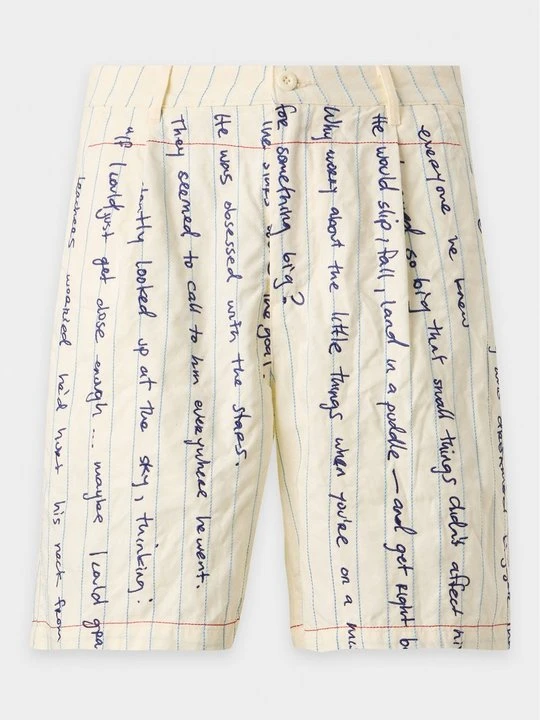 everyone he knew
so big that small things didn't affect
He would slip, fall, land in a puddle — and get right
Why worry about the little things when you're on a
for something big?
the goal.
He was obsessed with the stars.
They seemed to call to him everywhere he went.
looked up at the sky, thinking:
"If I could just get close enough... maybe I could
teachers worried he'd hurt his neck from